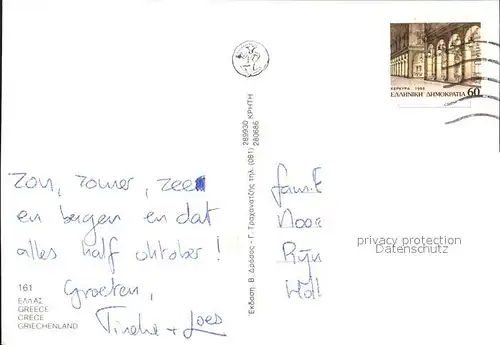 ΚΕΡΚΥΡΑ 1988
ΕΛΛΗΝΙΚΗ ΔΗΜΟΚΡΑΤΙΑ 60
Zon, zomer, zee
en bergen en dat
alles half oktober!
Groeten,
Tineke + Loes
161
ΕΛΛΑΣ
GREECE
GRECE
GRIECHENLAND
Έκδοση: Β. Δρόσος - Γ. Τραχανατζής τηλ. (081) 289930 280686 ΚΡΗΤΗ
fam. E
Noo
Rijn
Holl
privacy protection
Datenschutz